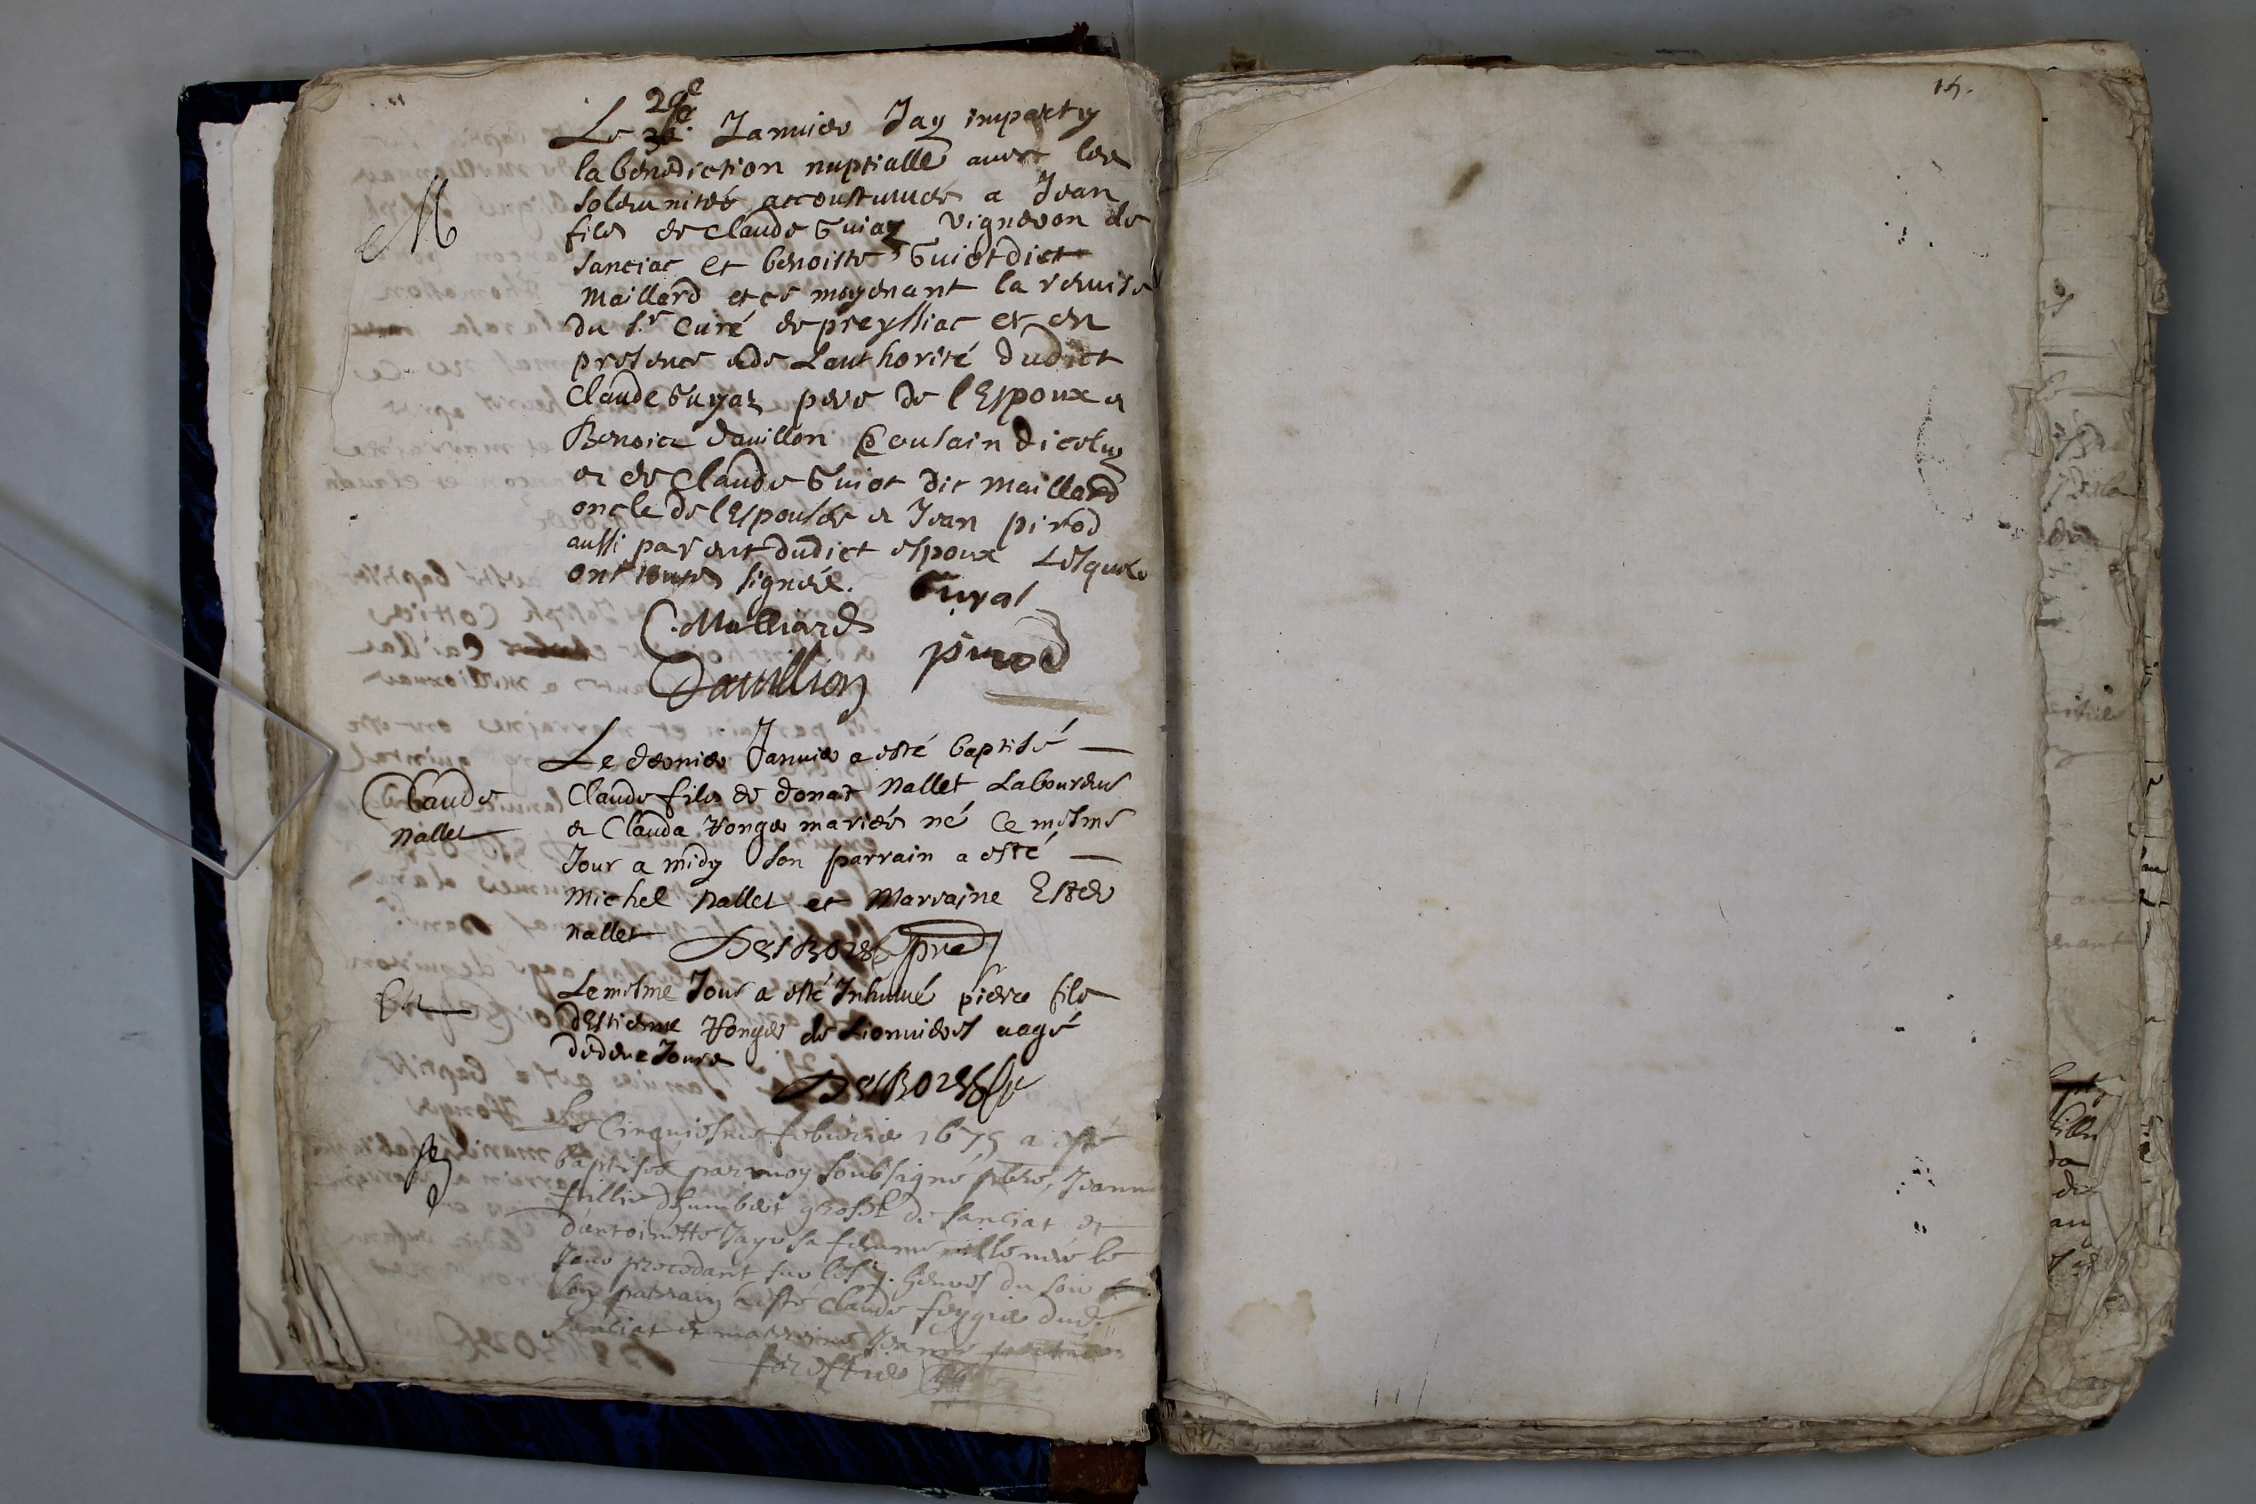 29e
Le Januier Jay imparty
la benediction nuptialle auec les
solemnités accoustumées a Jean
filz de claude Guiaz vigneron de
sanciac et benoiste Guiot dict
Maillard et ce moyenant la remise
du Sr. Curé de preyssiac et en
presence et de Lauthorité dudict
Claude Guyaz pere de l'Espoux et
Benoict dauillon Cousain diceluy
et de Claude Guiot dit Maillard
oncle de l'Espousée et Jean pirod
aussi parent dudict espoux Lesquels
ont signéz. Guyaz
C. Malliard
pirod
Dauillion
M
Le dernier Januier a esté baptisé
Claude
Nallet
Claude filz de donat Nallet Laboureur
et Clauda Honges mariés né ce mesme
Jour a midy son parrain a esté
Michel Nallet et Marraine Ester
Nallet DESBOIS pre
Le mesme Jour a esté Inhumé pierre filz
dEstienne Honges de Lionnieres aagé
de deux Jours
DESBOIS
Le Cinquiesme febvrier 1675 a esté
baptisée par moy soubsigné pbre, Jeanne
fillie dhumbert grosset de sanciat et
dantoinette Jayr sa femme elle née le
Jour precedant sur les 7. heures du soir
son parrain a esté Claude feygier dud.
sanciat et marraine Jeanne
forestier
15.